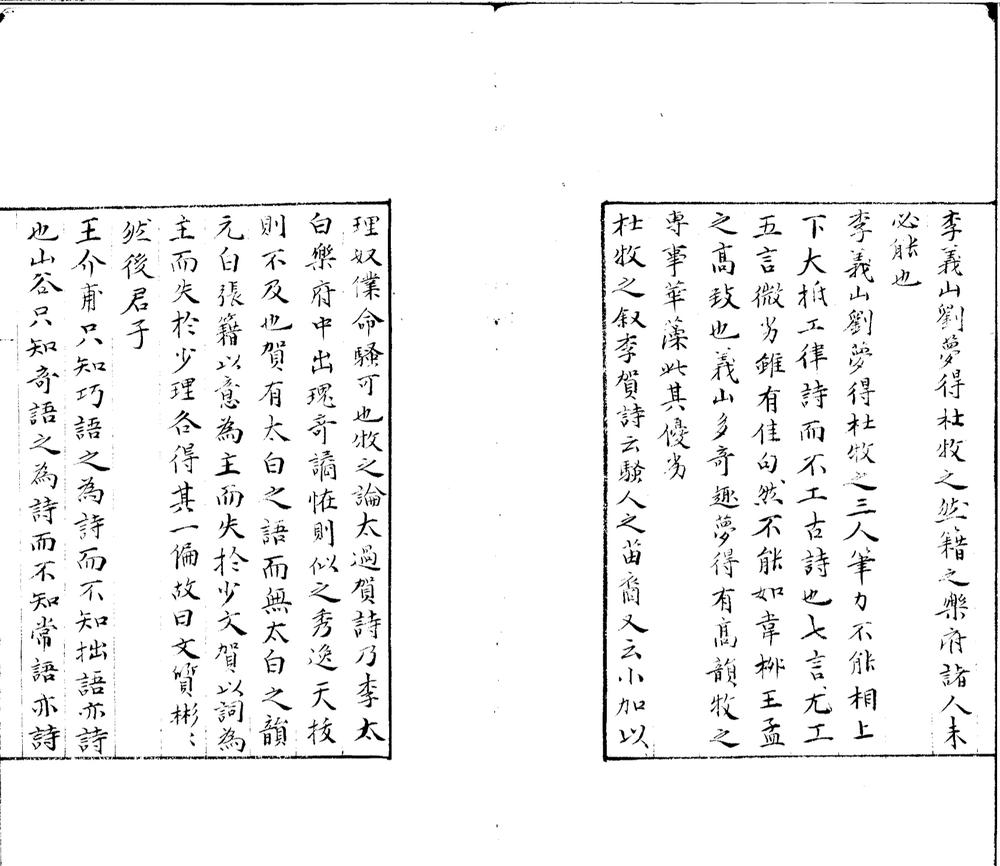 李義山劉夢得杜牧之然籍之樂府諸人未
必能也
李義山劉夢得杜牧之三人筆力不能相上
下大抵工律詩而不工古詩也七言尤工
五言微劣雖有佳句然不能如韋栁王孟
之髙致也義山多奇趣夢得有髙韻牧之
專事華藻此其優劣
杜牧之叙李賀詩云騷人之苗裔又云小加以
理奴僕命騷可也牧之論太過賀詩乃李太
白樂府中出瑰奇譎怪則似之秀逸天拔
則不及也賀有太白之語而無太白之韻
元白張籍以意為主而失於少文賀以詞為
主而失於少理各得其一偏故曰文質彬〻
然後君子
王介甫只知巧語之為詩而不知拙語亦詩
也山谷只知奇語之為詩而不知常語亦詩